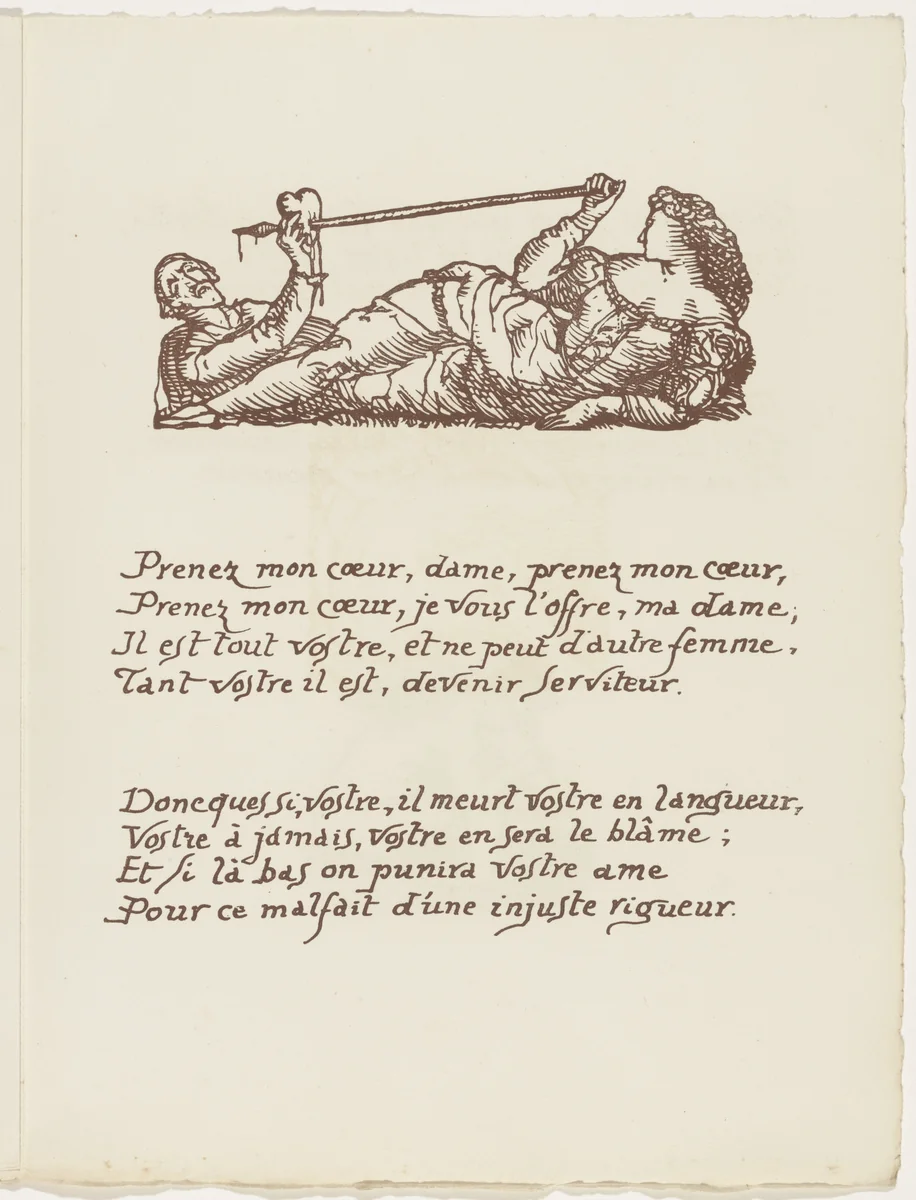 Prenez mon cœur, dame, prenez mon cœur,
Prenez mon cœur, je vous l'offre, ma dame;
Il est tout vostre, et ne peut d'autre femme,
Tant vostre il est, devenir serviteur.
Doncques si, vostre, il meurt vostre en langueur,
Vostre à jamais, vostre en sera le blâme;
Et si là bas on punira vostre ame
Pour ce malfait d'une injuste rigueur.